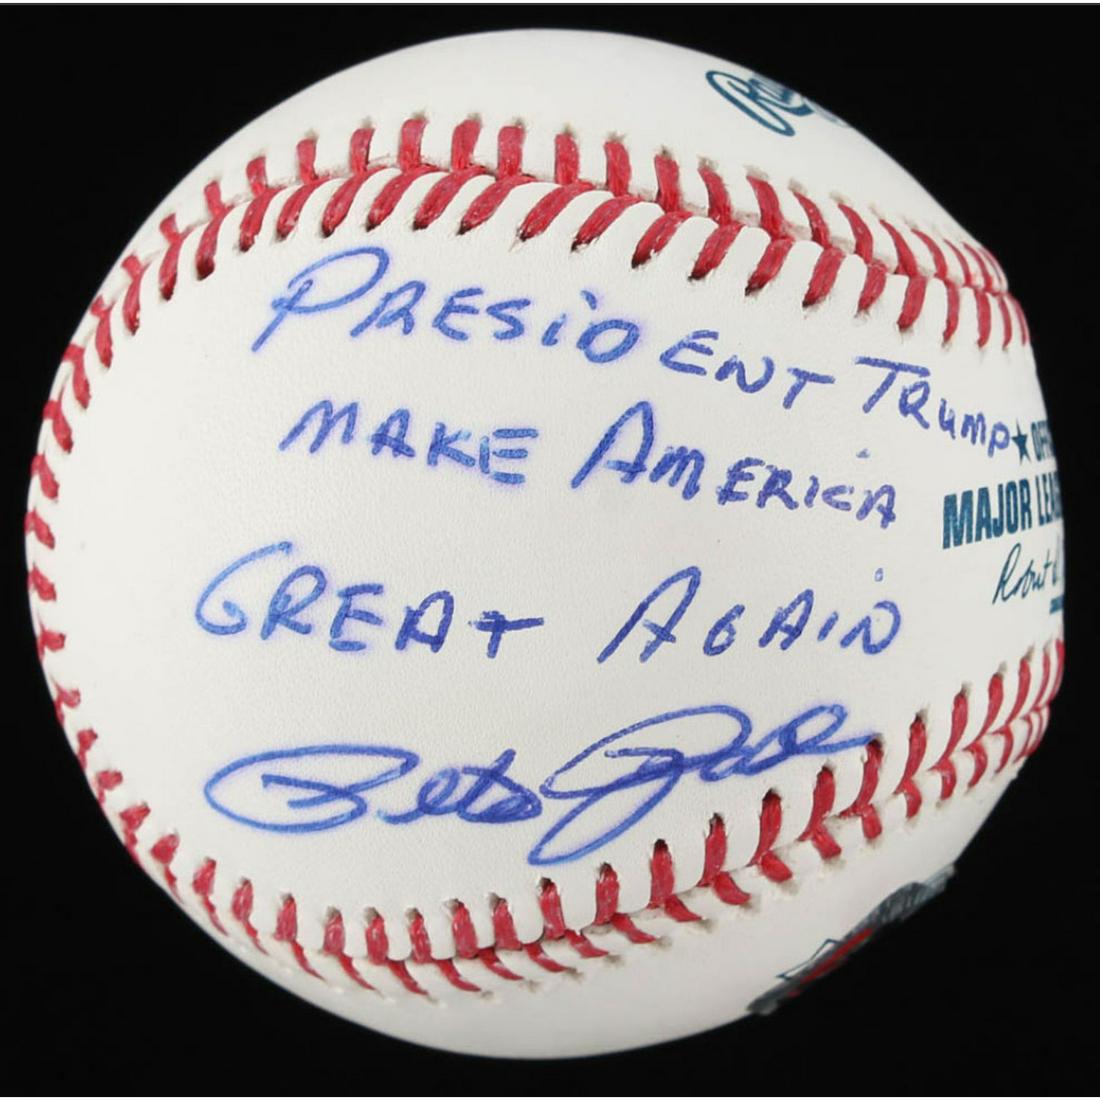 PRESiDENT TRump
MAKE AMERICA
GREAT AGAiN
Pete Rose
MAJOR